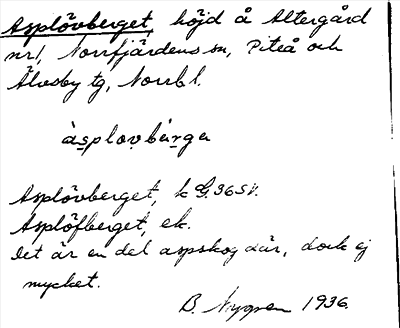 Asplövberget, höjd å Altergård
nr1, Norrfjärdens sn, Piteå och
Älvsby tg, Norrb l.
àsplovbærga
Asplövberget, k G. 36 SV.
Asplöfberget, ek.
Det är en del aspskog där, dock ej
mycket.
B. Nygren 1936.